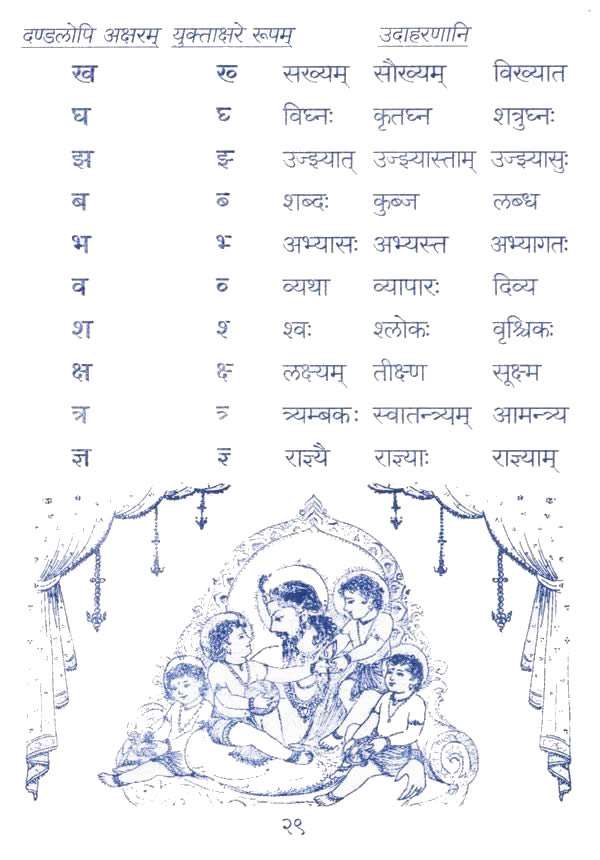 दण्डलोपि अक्षरम् युक्ताक्षरे रूपम् उदाहरणानि
ख ख्‍ सख्यम् सौख्यम् विख्यात
घ घ्‍ विघ्नः कृतघ्न शत्रुघ्नः
झ झ्‍ उज्झ्यात् उज्झ्यास्ताम् उज्झ्यासुः
ब ब्‍ शब्दः कुब्ज लब्ध
भ भ्‍ अभ्यासः अभ्यस्त अभ्यागतः
व व्‍ व्यथा व्यापारः दिव्य
श श्‍ श्वः श्लोकः वृश्चिकः
क्ष क्ष्‍ लक्ष्यम् तीक्ष्ण सूक्ष्म
त्र त्र्‍ त्र्यम्बकः स्वातन्त्र्यम् आमन्त्र्य
ज्ञ ज्ञ्‍ राज्ञ्यै राज्ञ्याः राज्ञ्याम्
२९